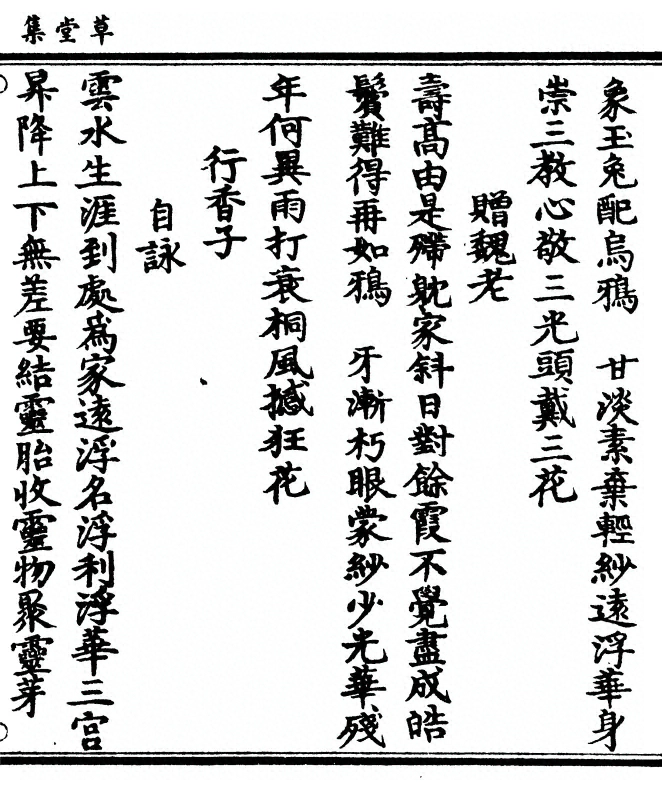 草堂集
象玉兔配烏鴉　甘淡素棄輕紗遠浮華身
崇三教心敬三光頭戴三花
贈魏老
壽高由是殢躭家斜日對餘霞不覺盡成皓
鬢難得再如鴉　牙漸朽眼蒙紗少光華殘
年何異雨打衰桐風撼狂花
行香子
自詠
雲水生涯到處為家遠浮名浮利浮華三宮
昇降上下無差要結靈胎收靈物聚靈芽